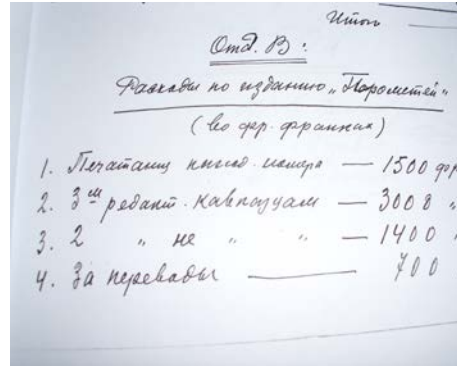 Итого
Отд. В:
Расходы по изданию „Прометей"
(во фр. франках)
1. Печатание — 1500 фр
2. 3м редакт. кавказцам — 3008 "
3. 2 " не " " — 1400 "
4. За переводы — 700